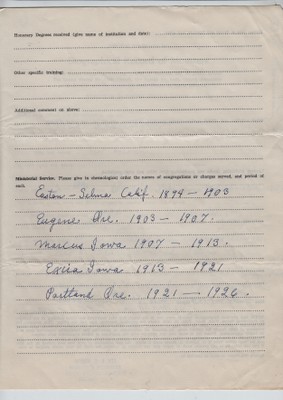 Honorary Degrees received (give name of institution and date):
Other specific training:
Additional comment on above:
Ministerial Service. Please give in chronological order the names of congregations or charges served, and period of
each.
Easton - Selma Calif. 1899 - 1903
Eugene Ore. 1903 - 1907.
Marcus Iowa 1907 - 1913.
Exira Iowa 1913 - 1921
Portland Ore. 1921 - 1926.